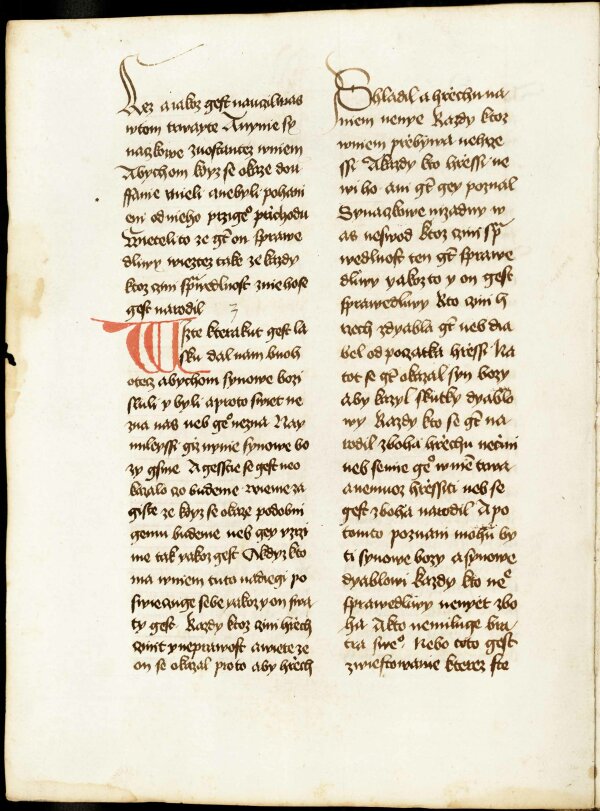 Lez a iakoz gest nauczil was
w tom trwayte A nynie sy
naczkowe zuostancz w niem
Abychom kdyz se okaze dou
ffanie mieli a nebyli pohani
eni od nieho przi geo prichodu
Wieteli to ze gt on sprawe
dliwy wieztez take ze kazdy
ktoz czini sprwedlnost z nie hose
gest narodil
3
Wizte kteraku gest la
sku dal nam buoh
otecz abychom synowe bozi
sluli y byli a proto swet ne
zna nas neb geo nezna Nay
mileyssi giz nynie synowe bo
zy gsme A gesscie se gest neo
kazalo czo budeme wieme za
giste ze kdyz se okaze podobni
gemu budeme neb gey vzrzi
me tak yakoz gest A kdyz kto
ma w niem tuto nadiegi po
swieczuge sebe yakoz y on swa
ty gest Kazdy ktoz czini hrzech
czini y neprawost a wiete ze
on se okazal proto aby hrzech
Shladil a hrzechu na
niem nenye Kazdy ktoz
w niem przebywa nehrze
ssi A kazdy kto hrzessi ne
wi ho ani gt gey poznal
Synaczkowe nizadny w
as neswod ktoz czini spra
wedlnost ten gt sprawe
dliwy yakoz to y on gest
sprawedliwy Kto czini h
rzech z dyabla gt neb dia
bel od poczatka hrzessi Na
tot se gt okazal syn bozy
aby kazyl skutky dyablo
wy Kazdy kto se gt na
rodil z boha hrzechu neczini
neb semie geo w niem trwa
a nemuoz hrzessiti neb se
gest z boha narodil A po
tomto poznani mohu by
ti synowe bozy a synowe
dyablowi Kazdy kto nee
sprawedliwy nenyet z bo
ha A kto nemiluge bra
tra sweo Nebo toto gest
zwiestowanie kterez ste